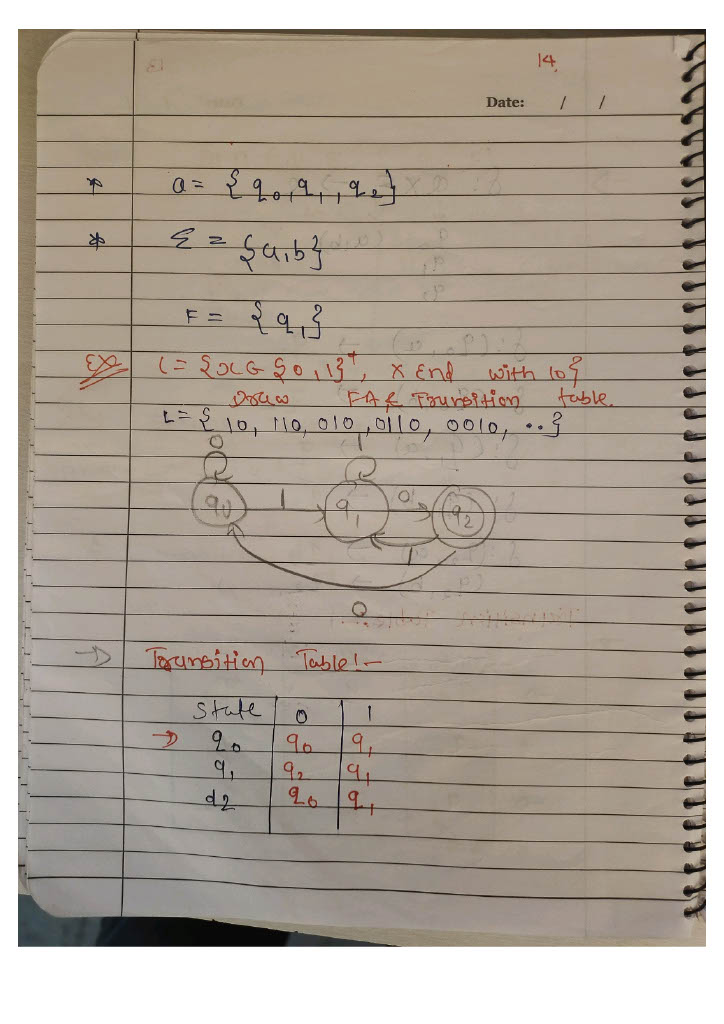 14.
Date: / /
* Q = { q0, q1, q2 }
* Σ = {a, b}
F = { q1 }
Ex L = { x ∈ {0, 1}+, x End with 10 }
Draw FA & Transition table.
L = { 10, 110, 010, 0110, 0010, .. }
0 1
q0 1 q1 0 q2
1
0
→ Transition Table :-
State 0 1
→ q0 q0 q1
q1 q2 q1
q2 q0 q1